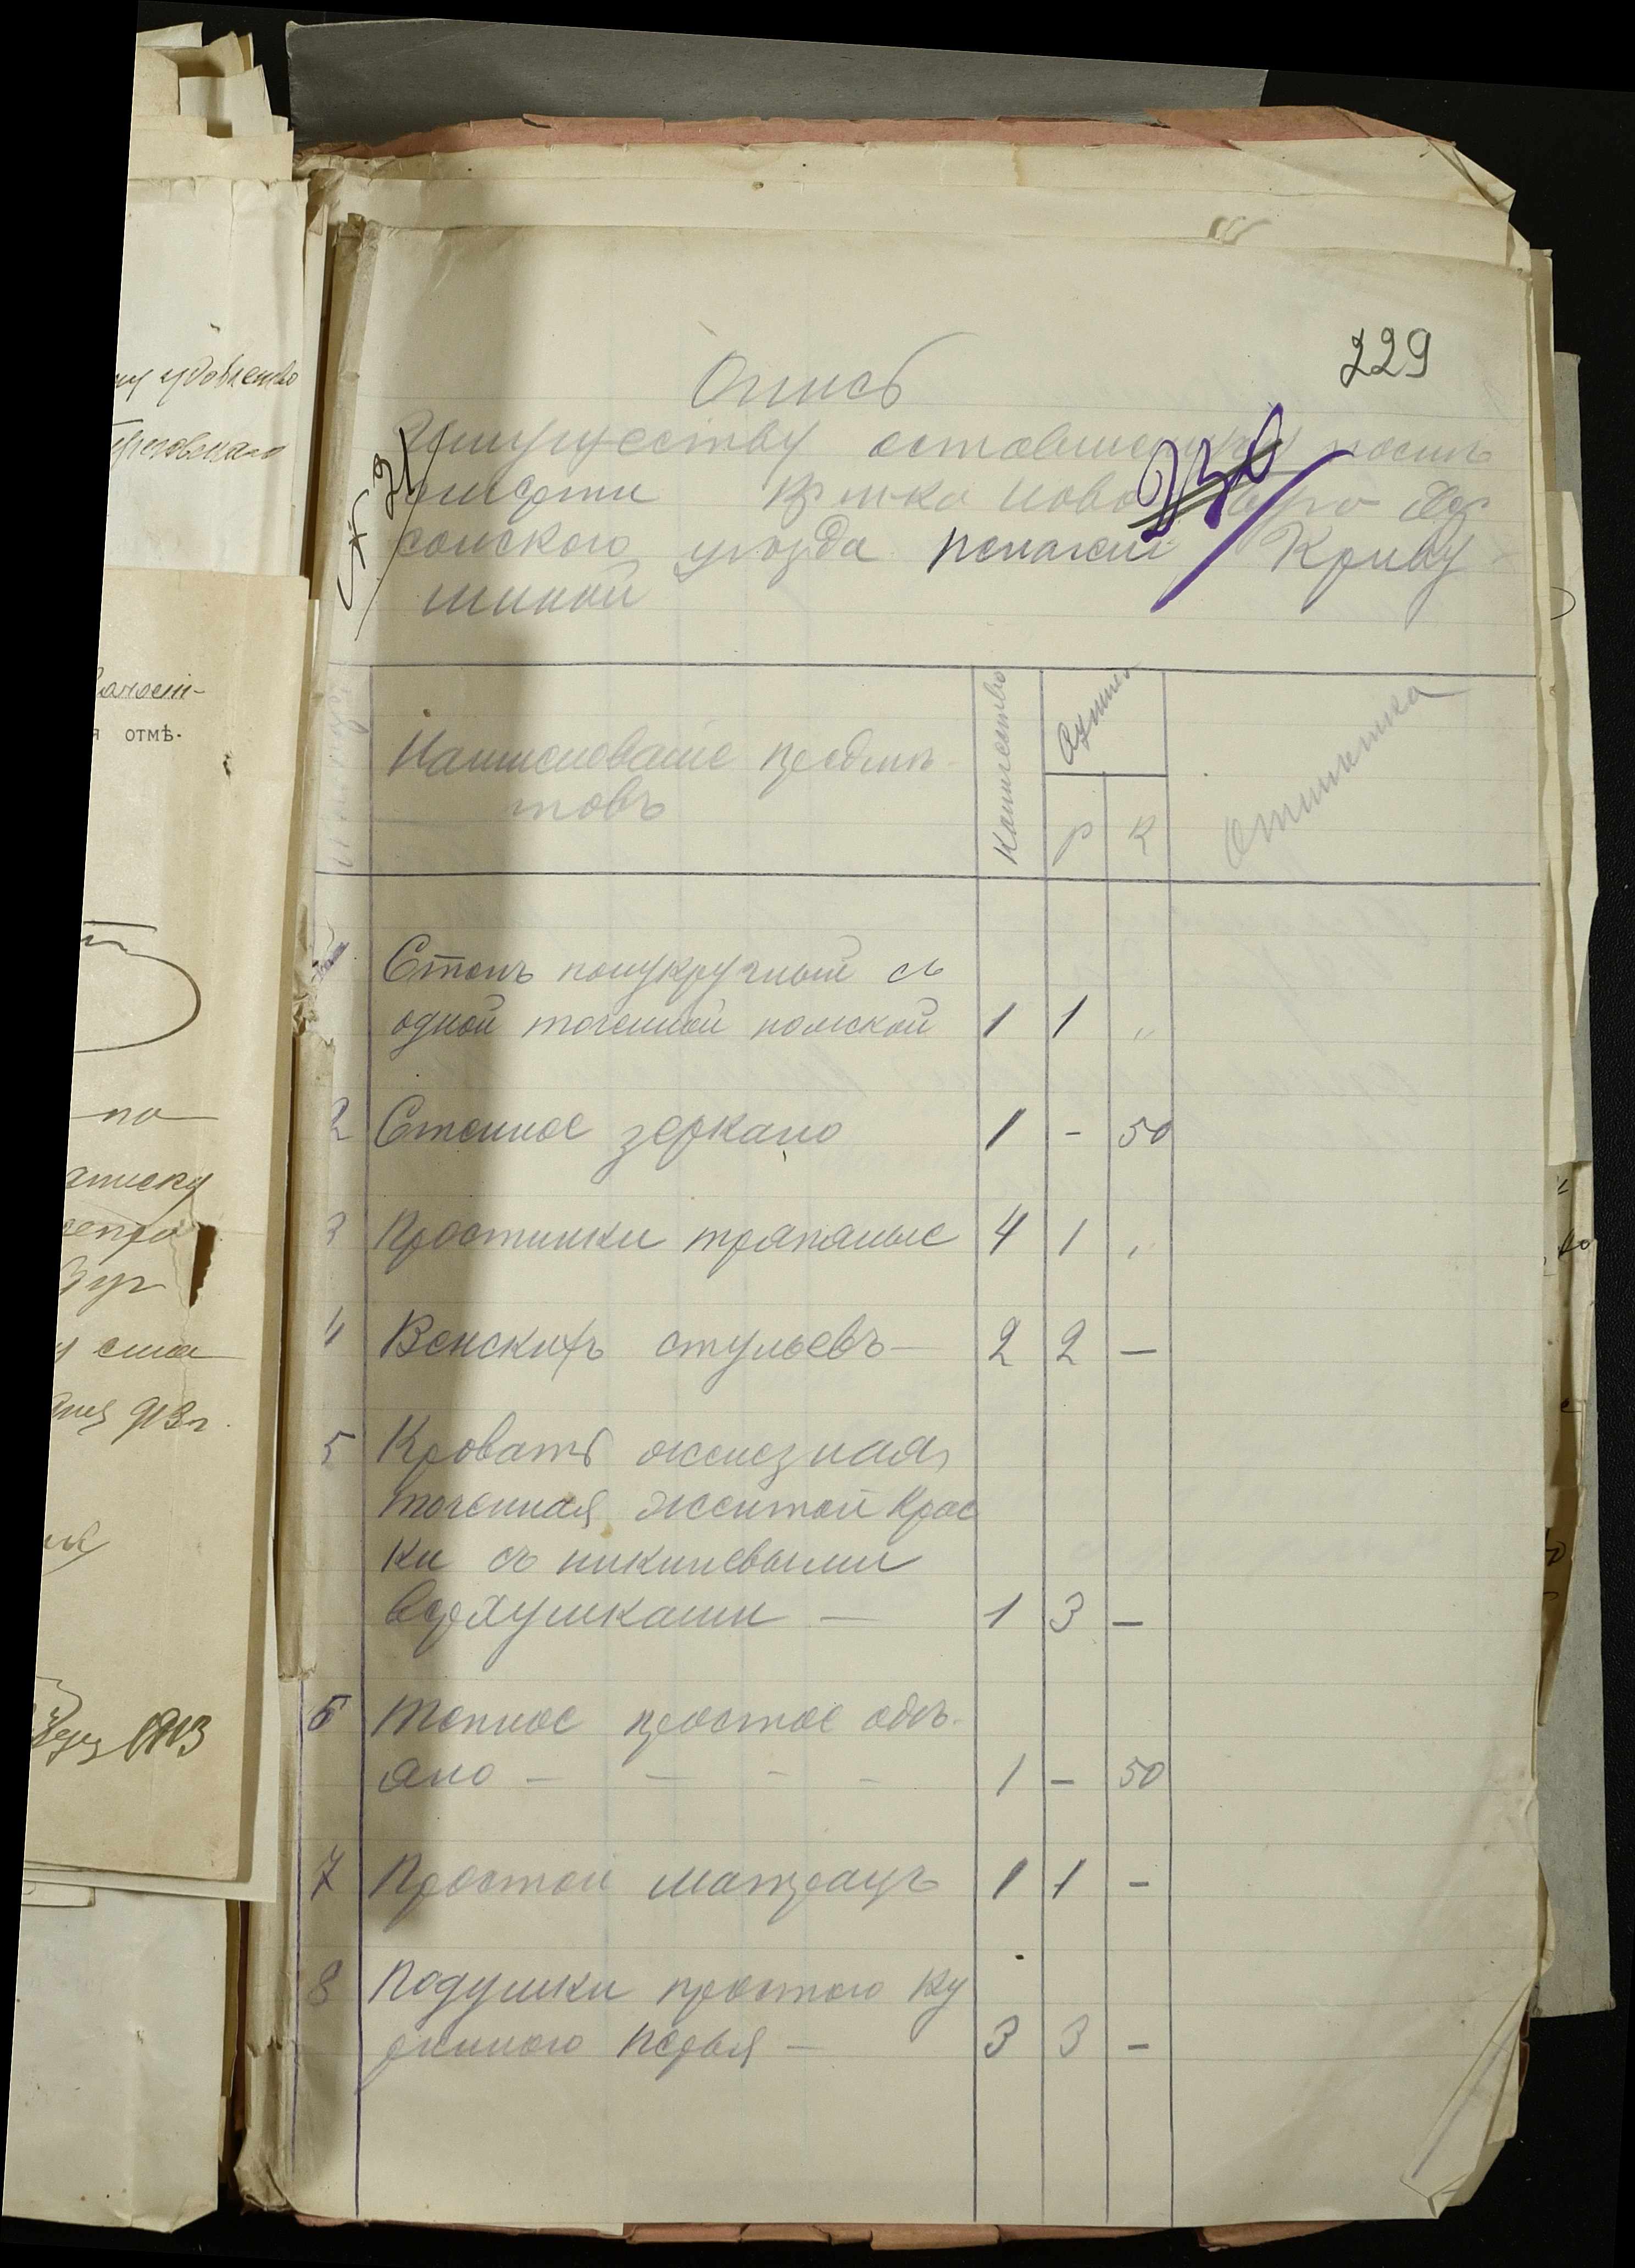 229
Опись
Имуществу оставшемуся после
смерти кр-ки Ново
сонского уезда Пелагеи Криву
шиной
Наименование предме-
товъ
Количество
Оценка
Р
К
Отметка
1 Столъ полукруглый съ
одной точеной ножкой 1 1 "
2 Стенное зеркало 1 - 50
3 Простынки тряпаные 4 1 "
4 Венскихъ стульевъ — 2 2 —
5 Кровать железная,
точенная желтой крас
ки съ никилевыми
верхушками — 1 3 —
6 Теплое простое оде-
яло - - - - 1 - 50
7 Простой матрацъ 1 1 -
8 Подушки простого ку
ринного перья - 3 3 -
отмѣ-
по
913 г.
1913